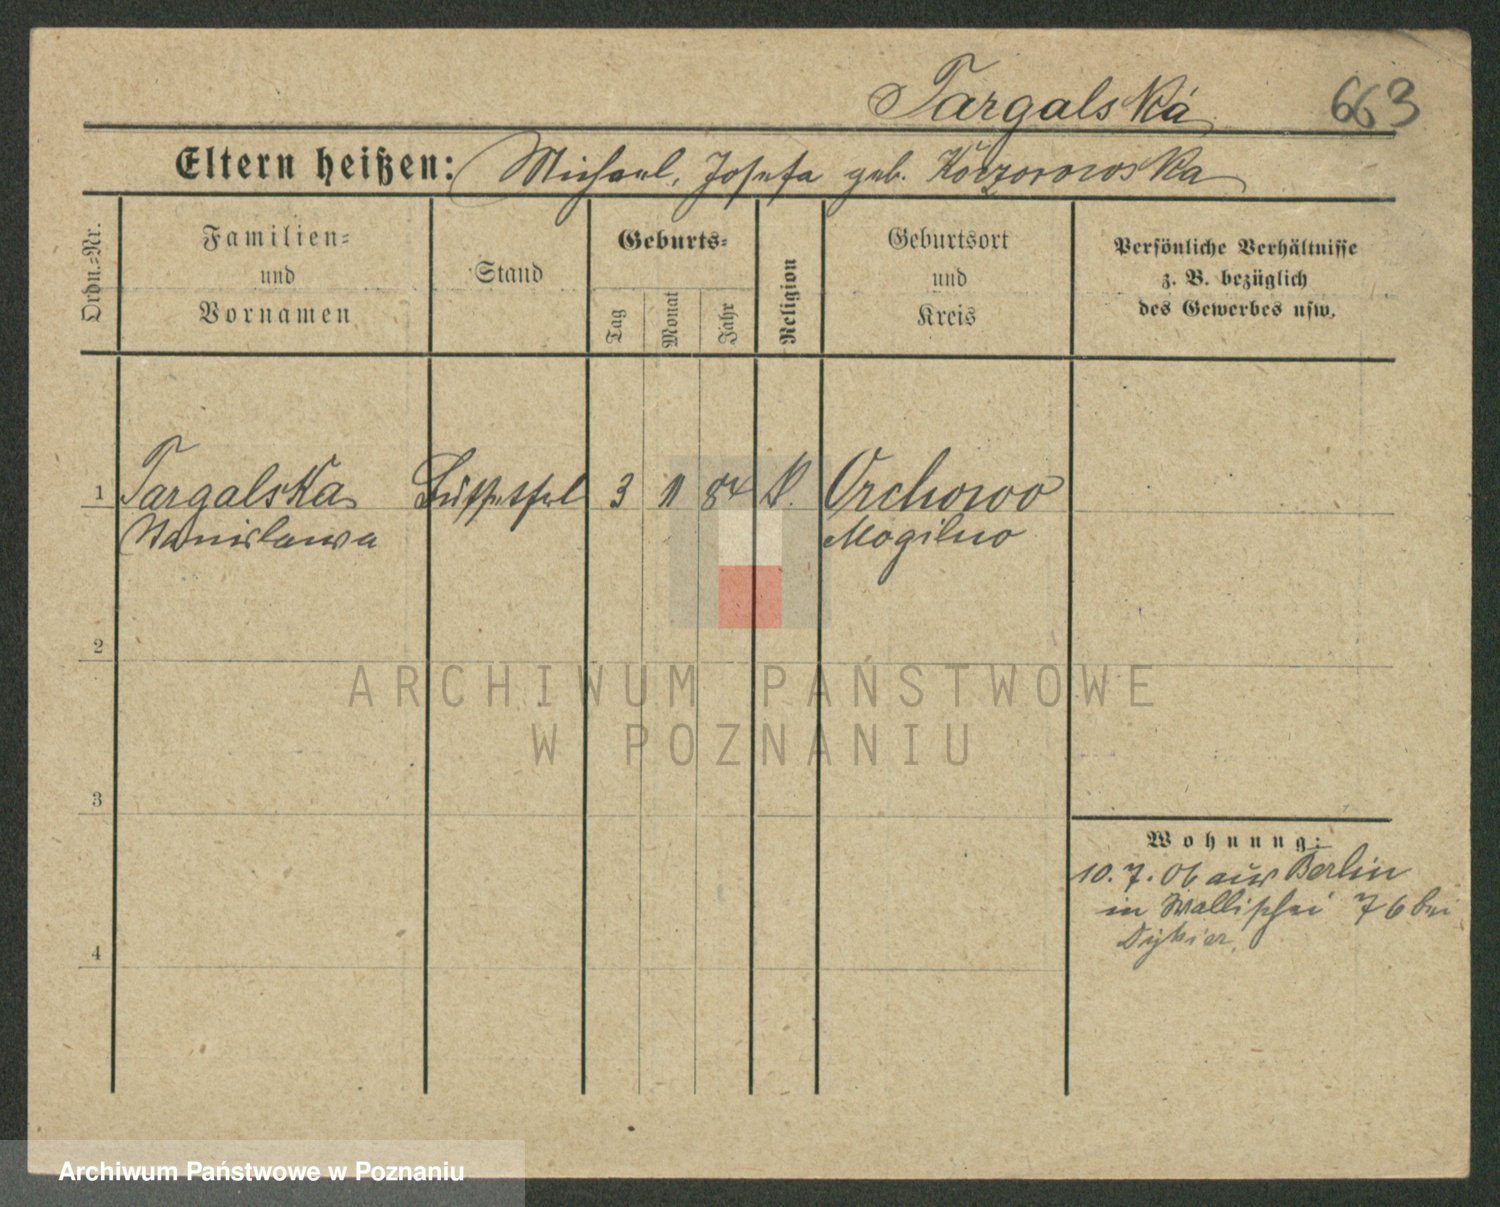 Targalska 663
Eltern heißen: Michael, Josefa geb. Korzorowska
Ordn.-Nr.
Familien-
und
Vornamen
Stand
Geburts-
Tag
Monat
Jahr
Religion
Geburtsort
und
Kreis
Persönliche Verhältnisse
z. B. bezüglich
des Gewerbes usw.
1 Targalska 3 11 84 k. Orchowo
Stanislawa Mogilno
2
ARCHIWUM PAŃSTWOWE
W POZNANIU
3
Wohnung:
10. 7. 06 aus Berlin
in Wallischei 76 bei
4
Archiwum Państwowe w Poznaniu